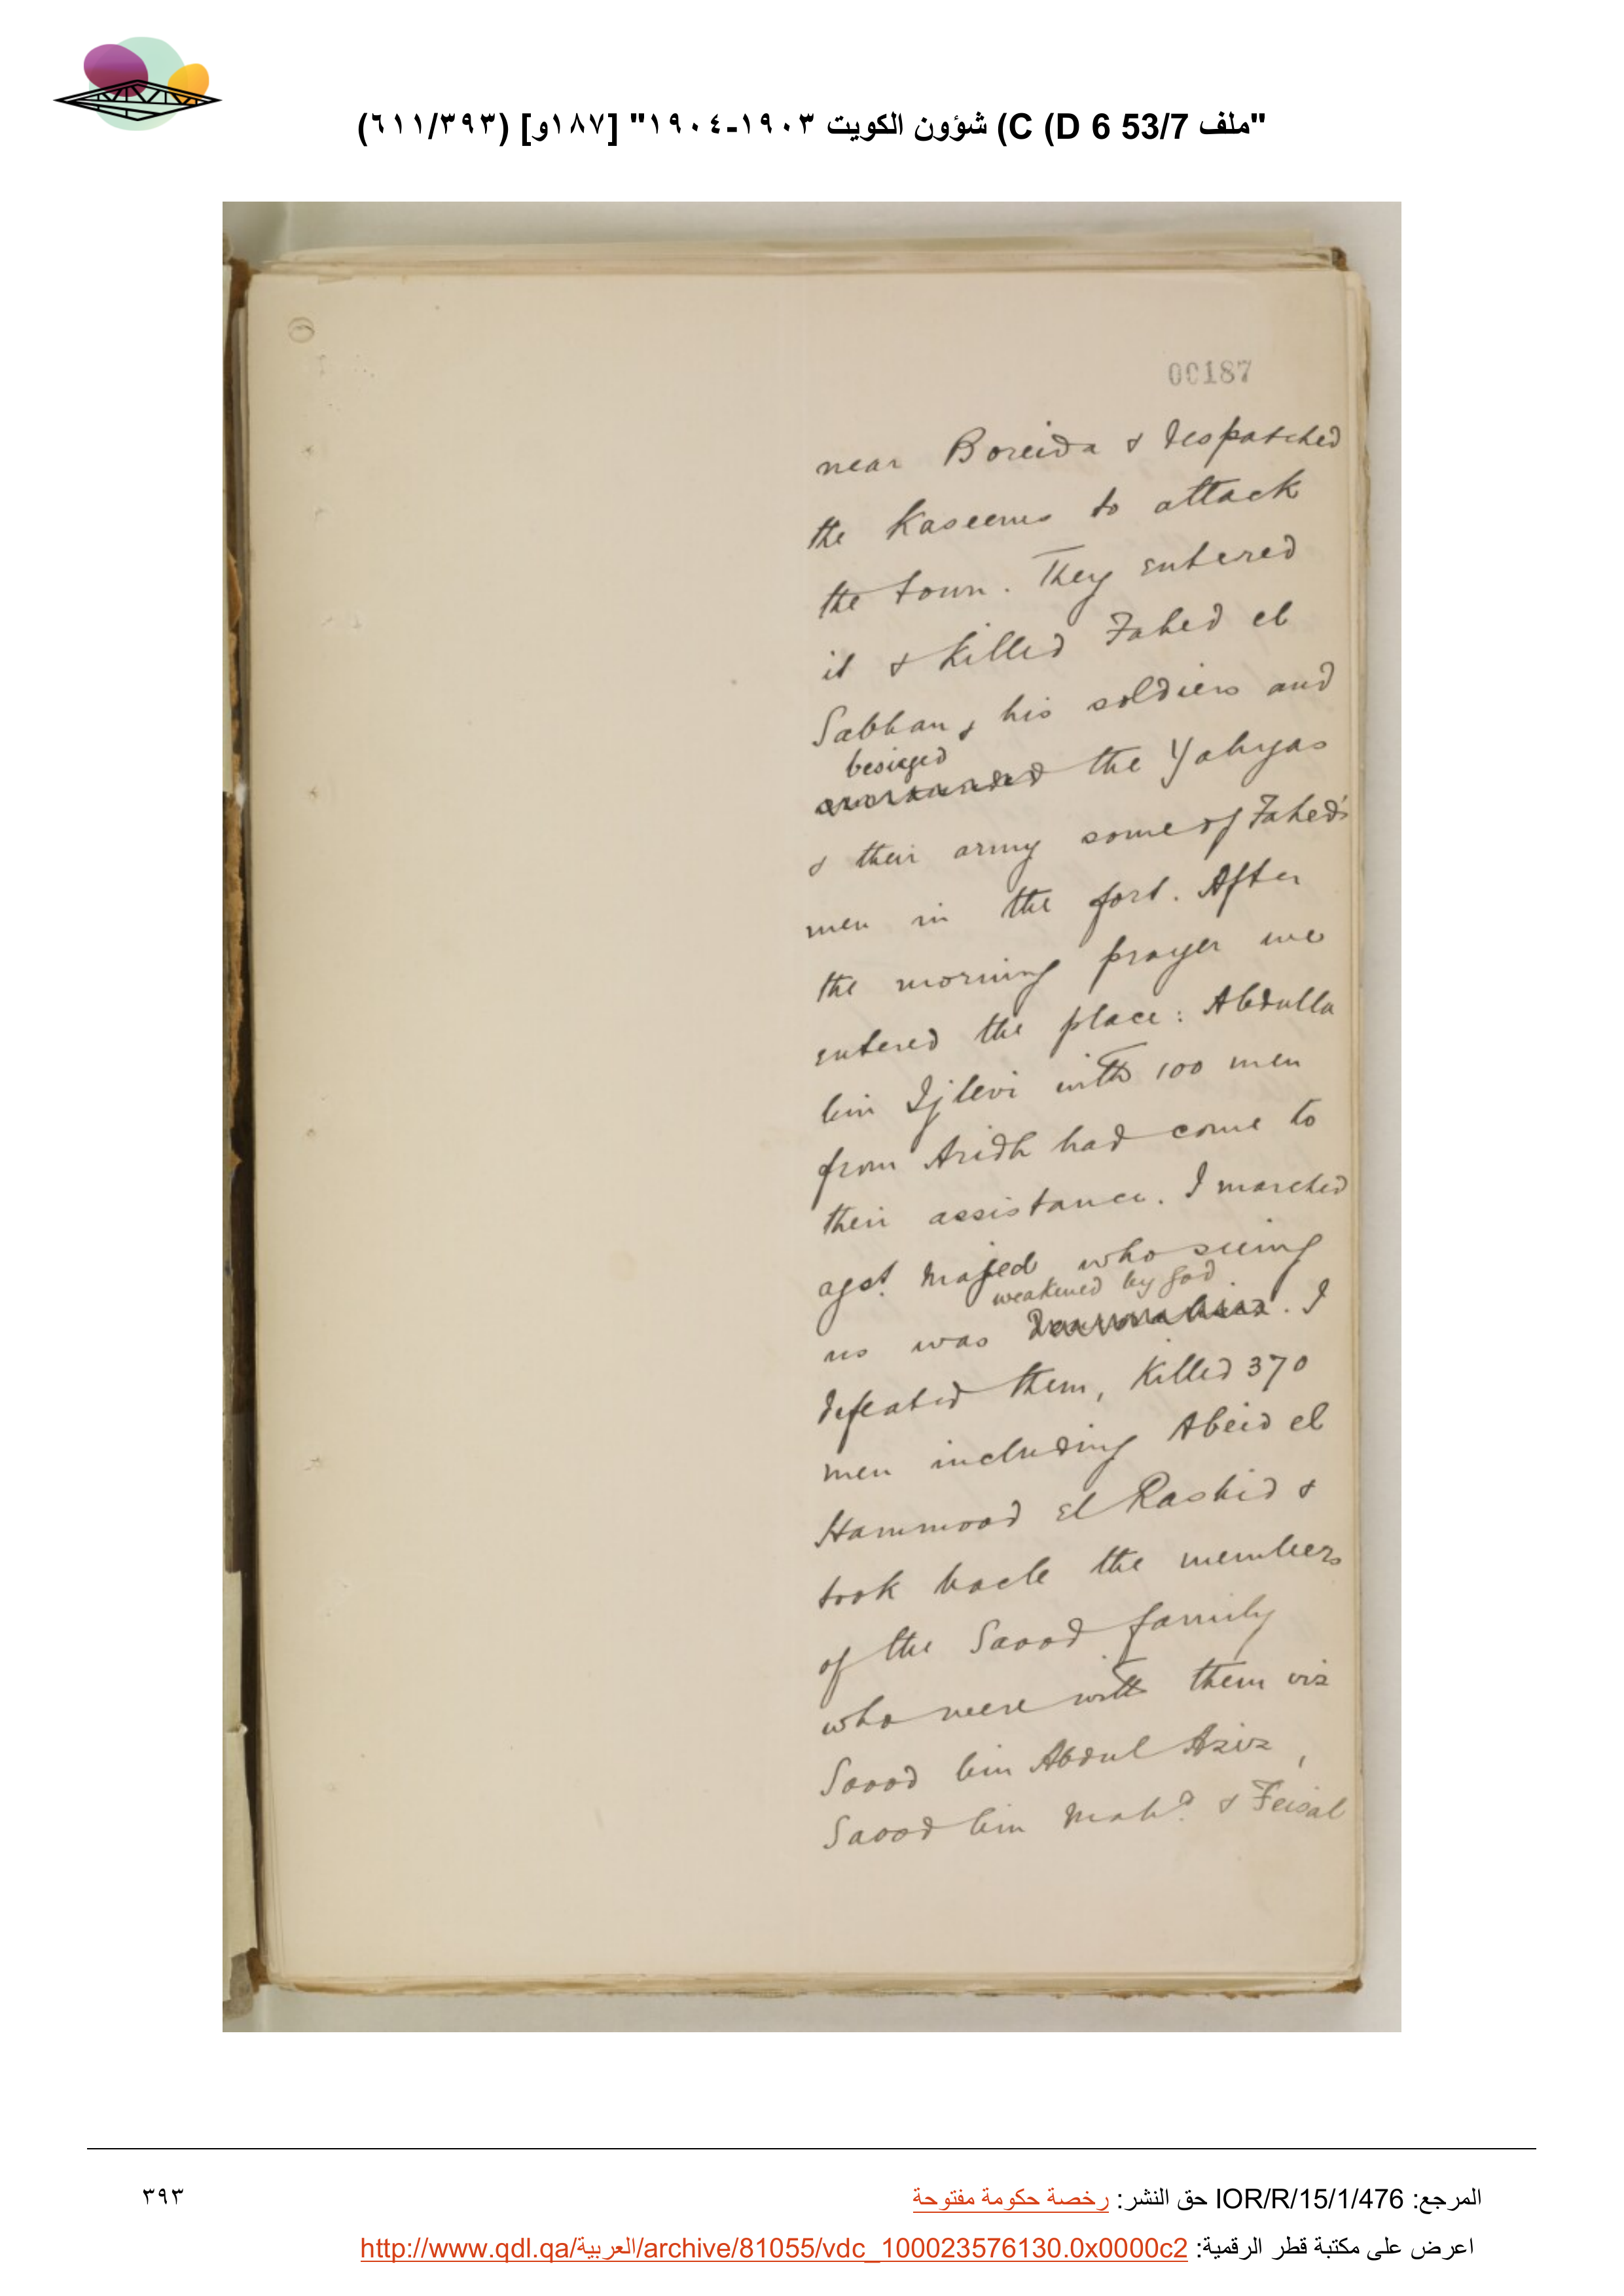 "ملف 53/7 D 6) C) شؤون الكويت ١٩٠٣-١٩٠٤" [١٨٧و] (٦١١/٣٩٣)
00187
near Boreida & despatched
the Kaseems to attack
the town. They entered
it & killed Fahed el
Sabhan, his soldiers and
besieged
the Yahyas
& their army some of Fahed's
men in the fort. After
the morning prayer we
entered the place: Abdulla
bin Ijlevi with 100 men
from Aridh had come to
their assistance. I marched
agst. Majed who seeing
weakened by God
us was . I
defeated them, killed 370
men including Abeid el
Hammood el Rashid &
took back the members
of the Saood family
who were with them viz
Saood bin Abdul Aziz,
Saood bin Mahd. & Feisal
المرجع: IOR/R/15/1/476 حق النشر: رخصة حكومة مفتوحة
٣٩٣
اعرض على مكتبة قطر الرقمية: http://www.qdl.qa/العربية/archive/81055/vdc_100023576130.0x0000c2